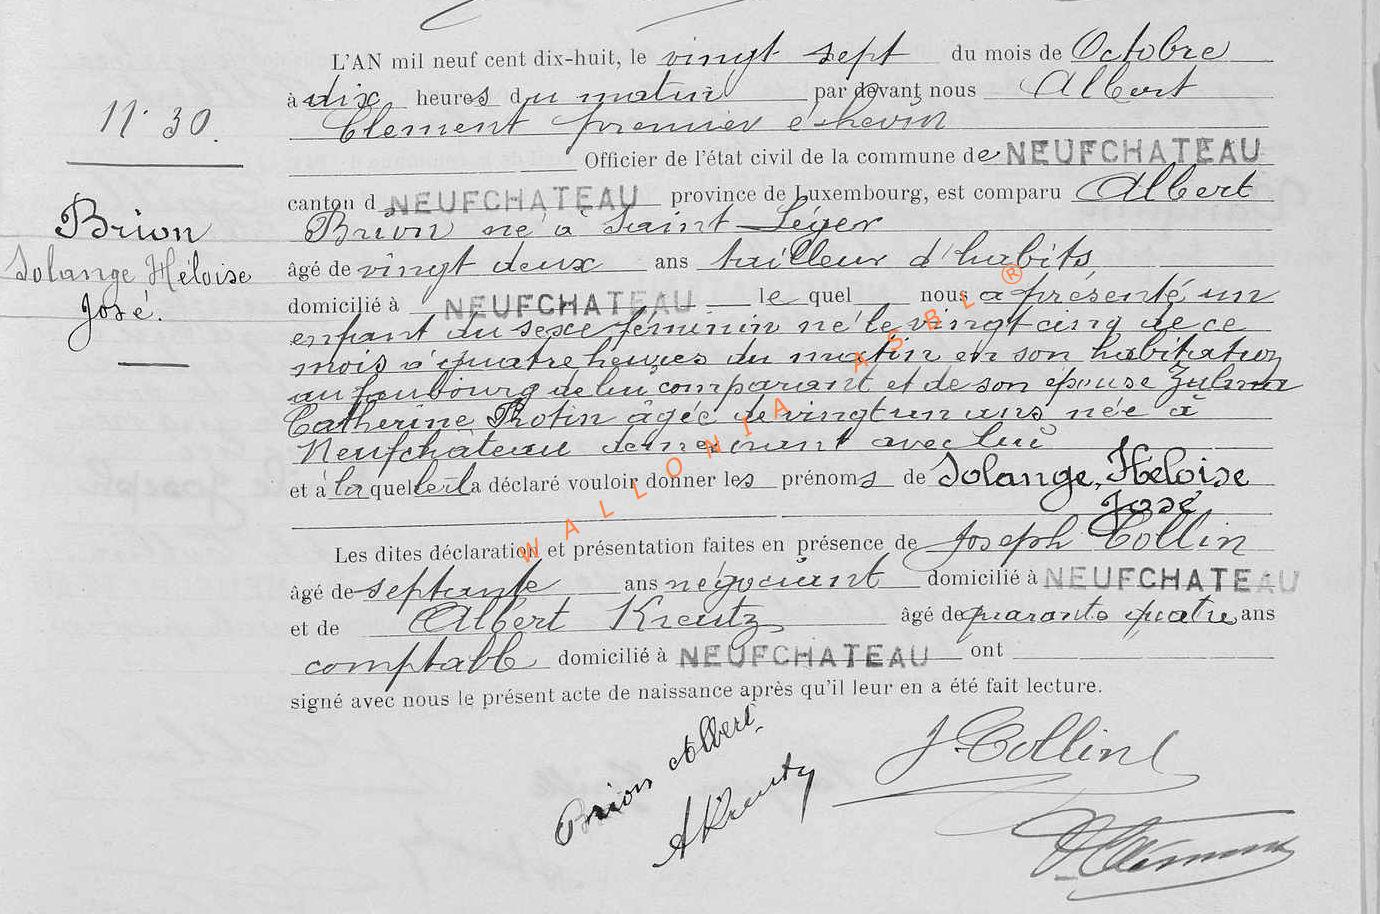 L'AN mil neuf cent dix-huit, le vingt sept du mois de Octobre
à dix heures du matin par devant nous Albert
Clement premier échevin
N° 30.
Officier de l'état civil de la commune de NEUFCHATEAU
canton d NEUFCHATEAU province de Luxembourg, est comparu Albert
Brion né à Saint Léger
Brion
Solange Héloïse
José.
âgé de vingt deux ans tailleur d'habits,
domicilié à NEUFCHATEAU le quel nous a présenté un
enfant du sexe féminin né le vingt cinq de ce
mois à quatre heures du matin en son habitation
au faubourg de lui comparant et de son épouse Zulma
Catherine Rotin âgée de vingt un ans née à
Neufchâteau demeurant avec lui
et à la quelle il a déclaré vouloir donner les prénoms de Solange, Héloïse
José
Les dites déclaration et présentation faites en présence de Joseph Collin
âgé de septante ans négociant domicilié à NEUFCHATEAU
et de Albert Kreutz âgé de quarante quatre ans
comptable domicilié à NEUFCHATEAU ont
signé avec nous le présent acte de naissance après qu'il leur en a été fait lecture.
Brion Albert
A Kreutz
J. Collin
A. Clément
WALLONIA ASBL ®